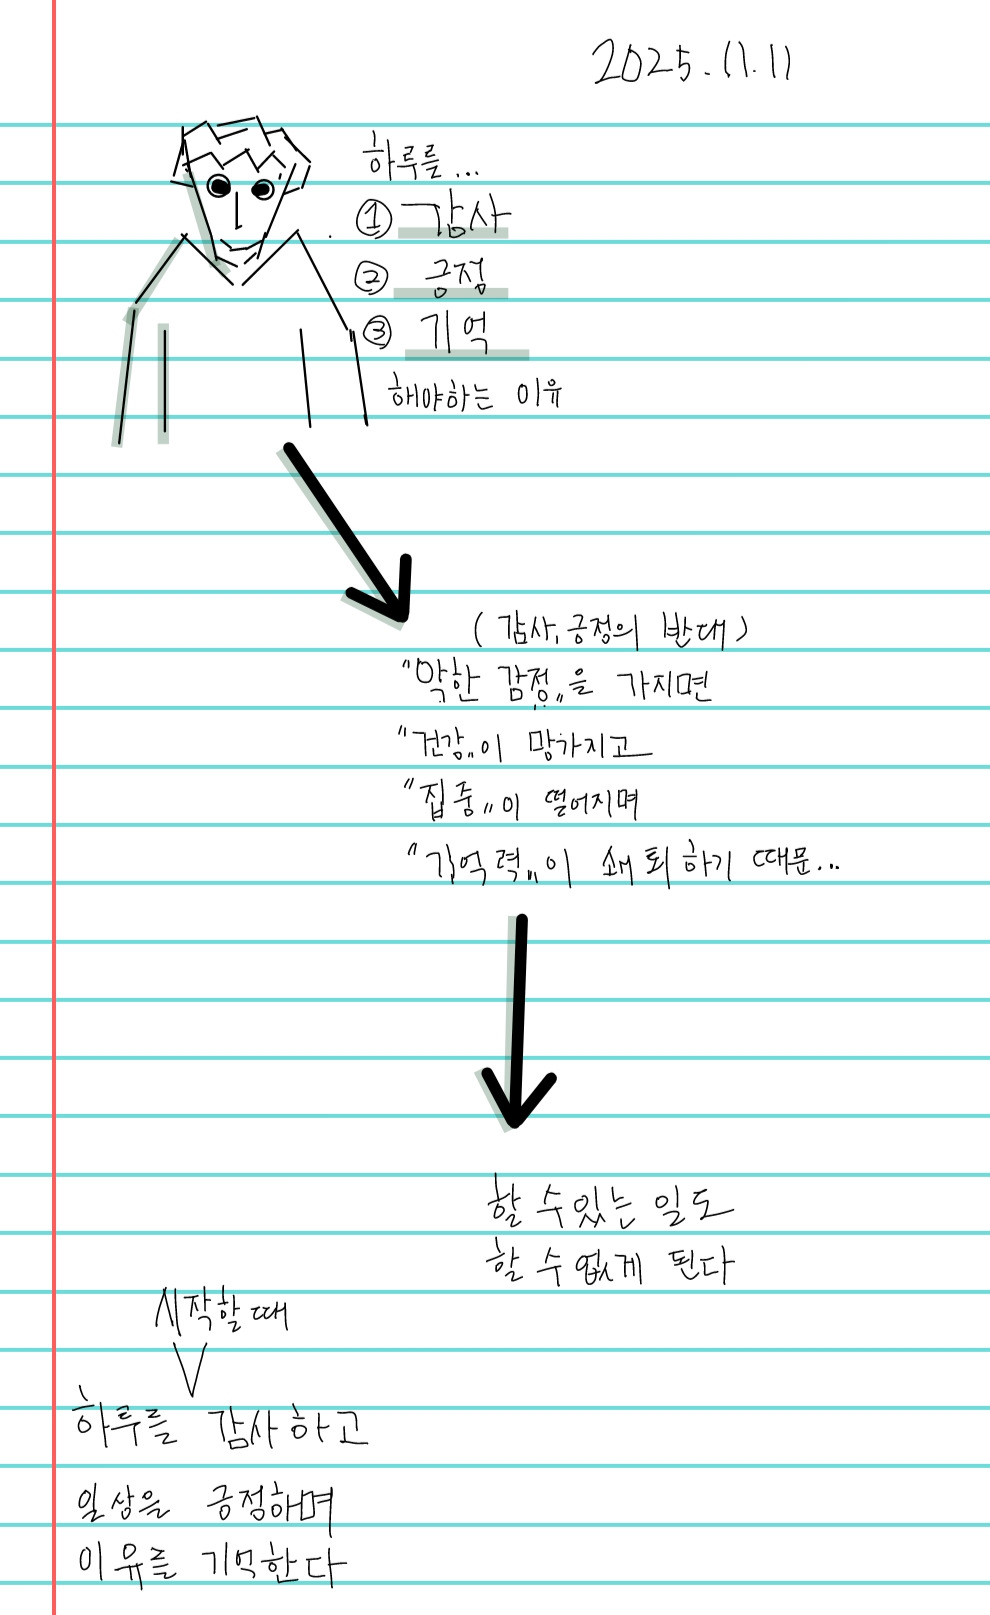 2025.11.11
하루를...
① 감사
② 긍정
③ 기억
해야하는 이유
(감사, 긍정의 반대)
"악한 감정"을 가지면
"건강"이 망가지고
"집중"이 떨어지며
"기억력"이 쇄퇴하기 때문...
할 수 있는 일도
할 수 없게 된다
시작할 때
하루를 감사하고
일상을 긍정하며
이유를 기억한다